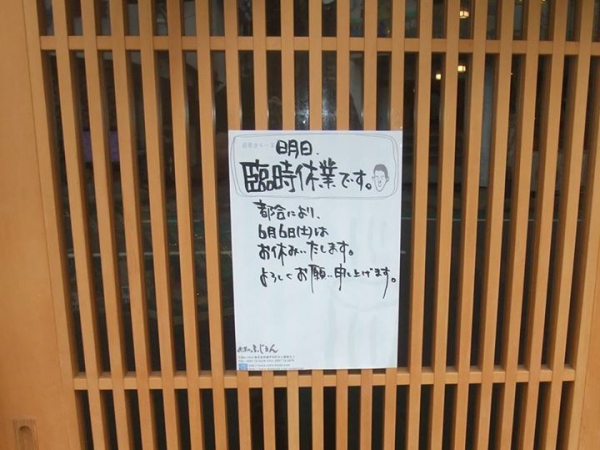 明日、
臨時休業です。
都合により、
6月6日(土)は
お休みいたします。
よろしくお願い申し上げます。
ふじもん